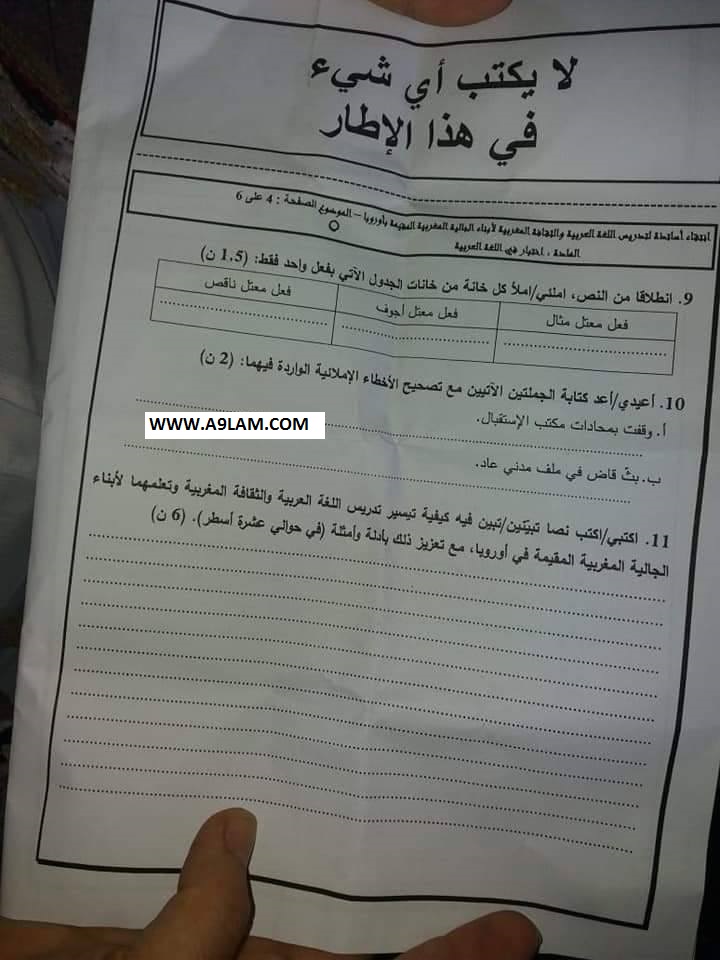 لا يكتب أي شيء
في هذا الإطار
انتقاء أساتذة لتدريس اللغة العربية والثقافة المغربية لأبناء الجالية المغربية المقيمة بأوروبا – الموضوع الصفحة : 4 على 6
المادة : اختبار في اللغة العربية
9. انطلاقا من النص، املئي/املأ كل خانة من خانات الجدول الآتي بفعل واحد فقط: (1.5 ن)
فعل معتل مثال فعل معتل أجوف فعل معتل ناقص
10. أعيدي/أعد كتابة الجملتين الآتيين مع تصحيح الأخطاء الإملائية الواردة فيهما: (2 ن)
أ. وقفت بمحادات مكتب الإستقبال.
WWW.A9LAM.COM
ب. بثّ قاض في ملف مدني عاد.
11. اكتبي/اكتب نصا تبيّنين/تبين فيه كيفية تيسير تدريس اللغة العربية والثقافة المغربية وتعلمهما لأبناء
الجالية المغربية المقيمة في أوروبا، مع تعزيز ذلك بأدلة وأمثلة (في حوالي عشرة أسطر). (6 ن)